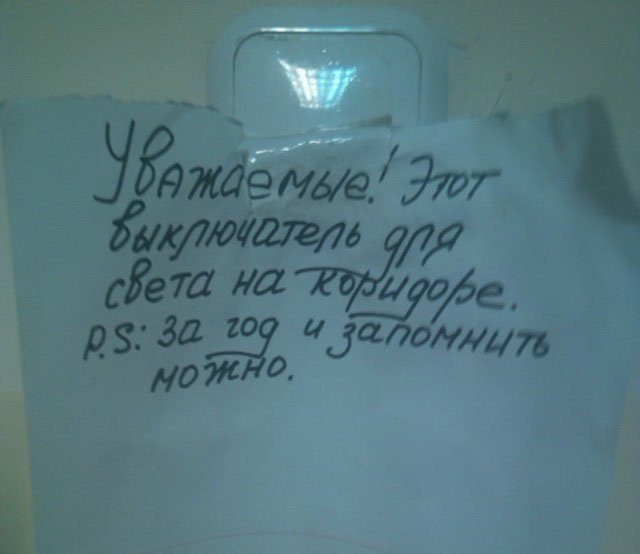 Уважаемые! Этот
выключатель для
света на коридоре.
P.S: За год и запомнить
можно.